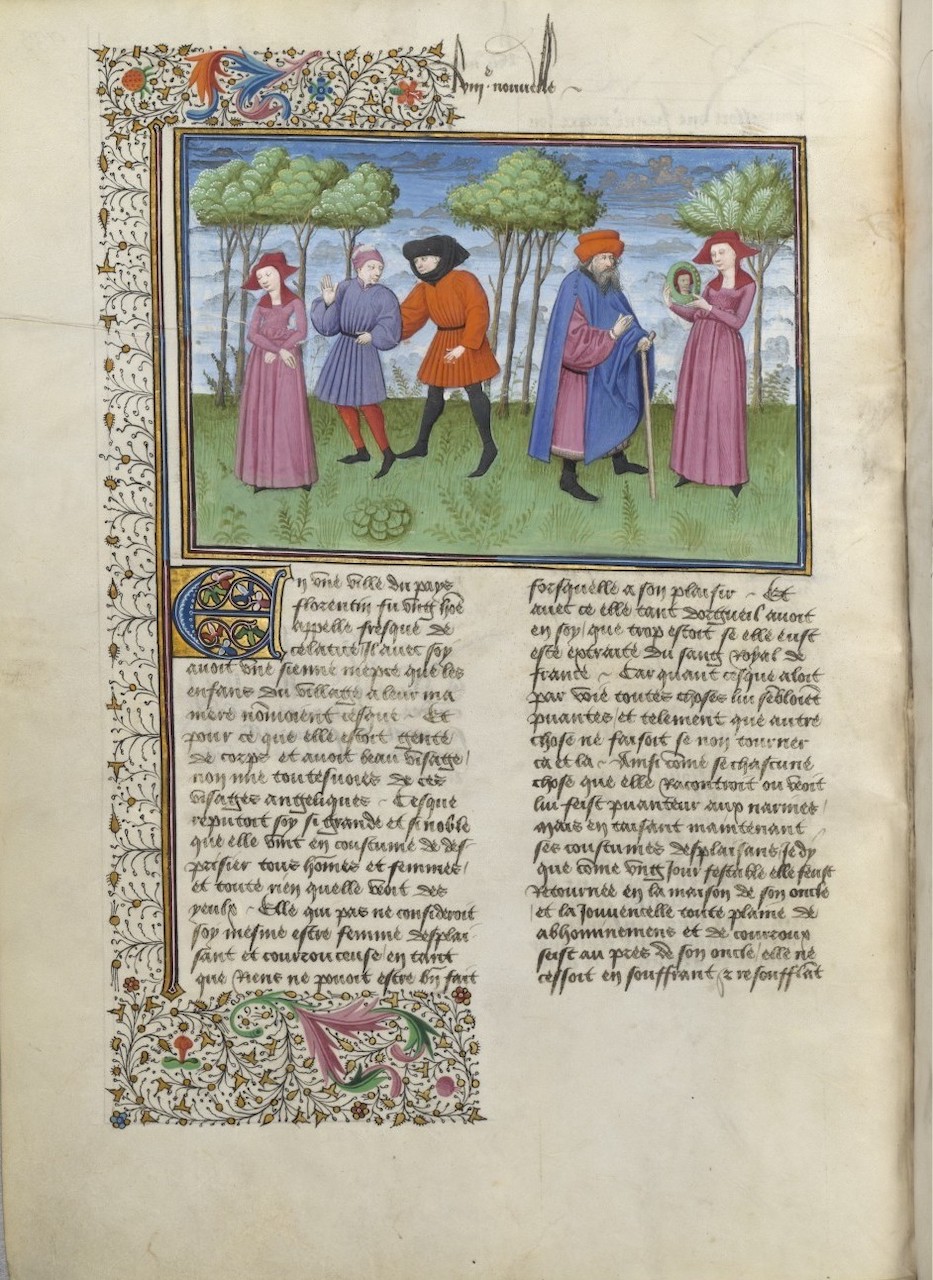 viii nouvelle
En une ville du pays
florentin fu ung hōe
appelle fresque de
celatice Il avec soy
avoit une sienne niepce que les
enfans du village a leur ma
mere nōmoient cesque Et
pour ce que elle estoit gente
de corps et avoit beau visage
non mie toutesvoies de ces
visages angeliques Cesque
reputoit soy si grande et si noble
que elle vint en coustume de des
prisier tous hōmes et femmes
et toute rien quelle veit des
yeulx Elle qui pas ne consideroit
soy mesme estre femme desplai
sant et courrouceuse en tant
que riens ne povoit estre bn̄ fait
forsquelle a son plaisir Et
avec ce elle tant dorgueil avoit
en soy que trop estoit se elle eust
este extraite du sang royal de
france Car quant cesque aloit
par voie toutes choses lui sēbloiēt
puantes et telement que autre
chose ne faisoit se non tourner
ca et la Ainsi cōme se chascune
chose que elle racontroit ou veoit
lui feist puanteur aux narines
Mais en taisant maintenant
ses coustumes desplaisans Je dy
que cōme ung Jour festable elle feust
Retournee en la maison de son oncle
et la Jouvencelle toute plaine de
abhominemens et de courroux
seist au pres de son oncle elle ne
cessoit en souffrant z resoufflāt